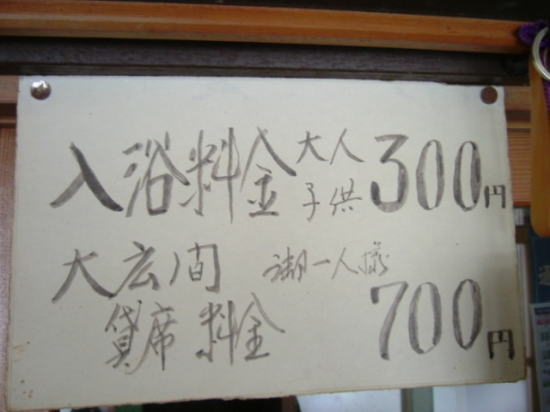 入浴料金 大人 300円
子供
大広間 御一人様
貸席料金 700円